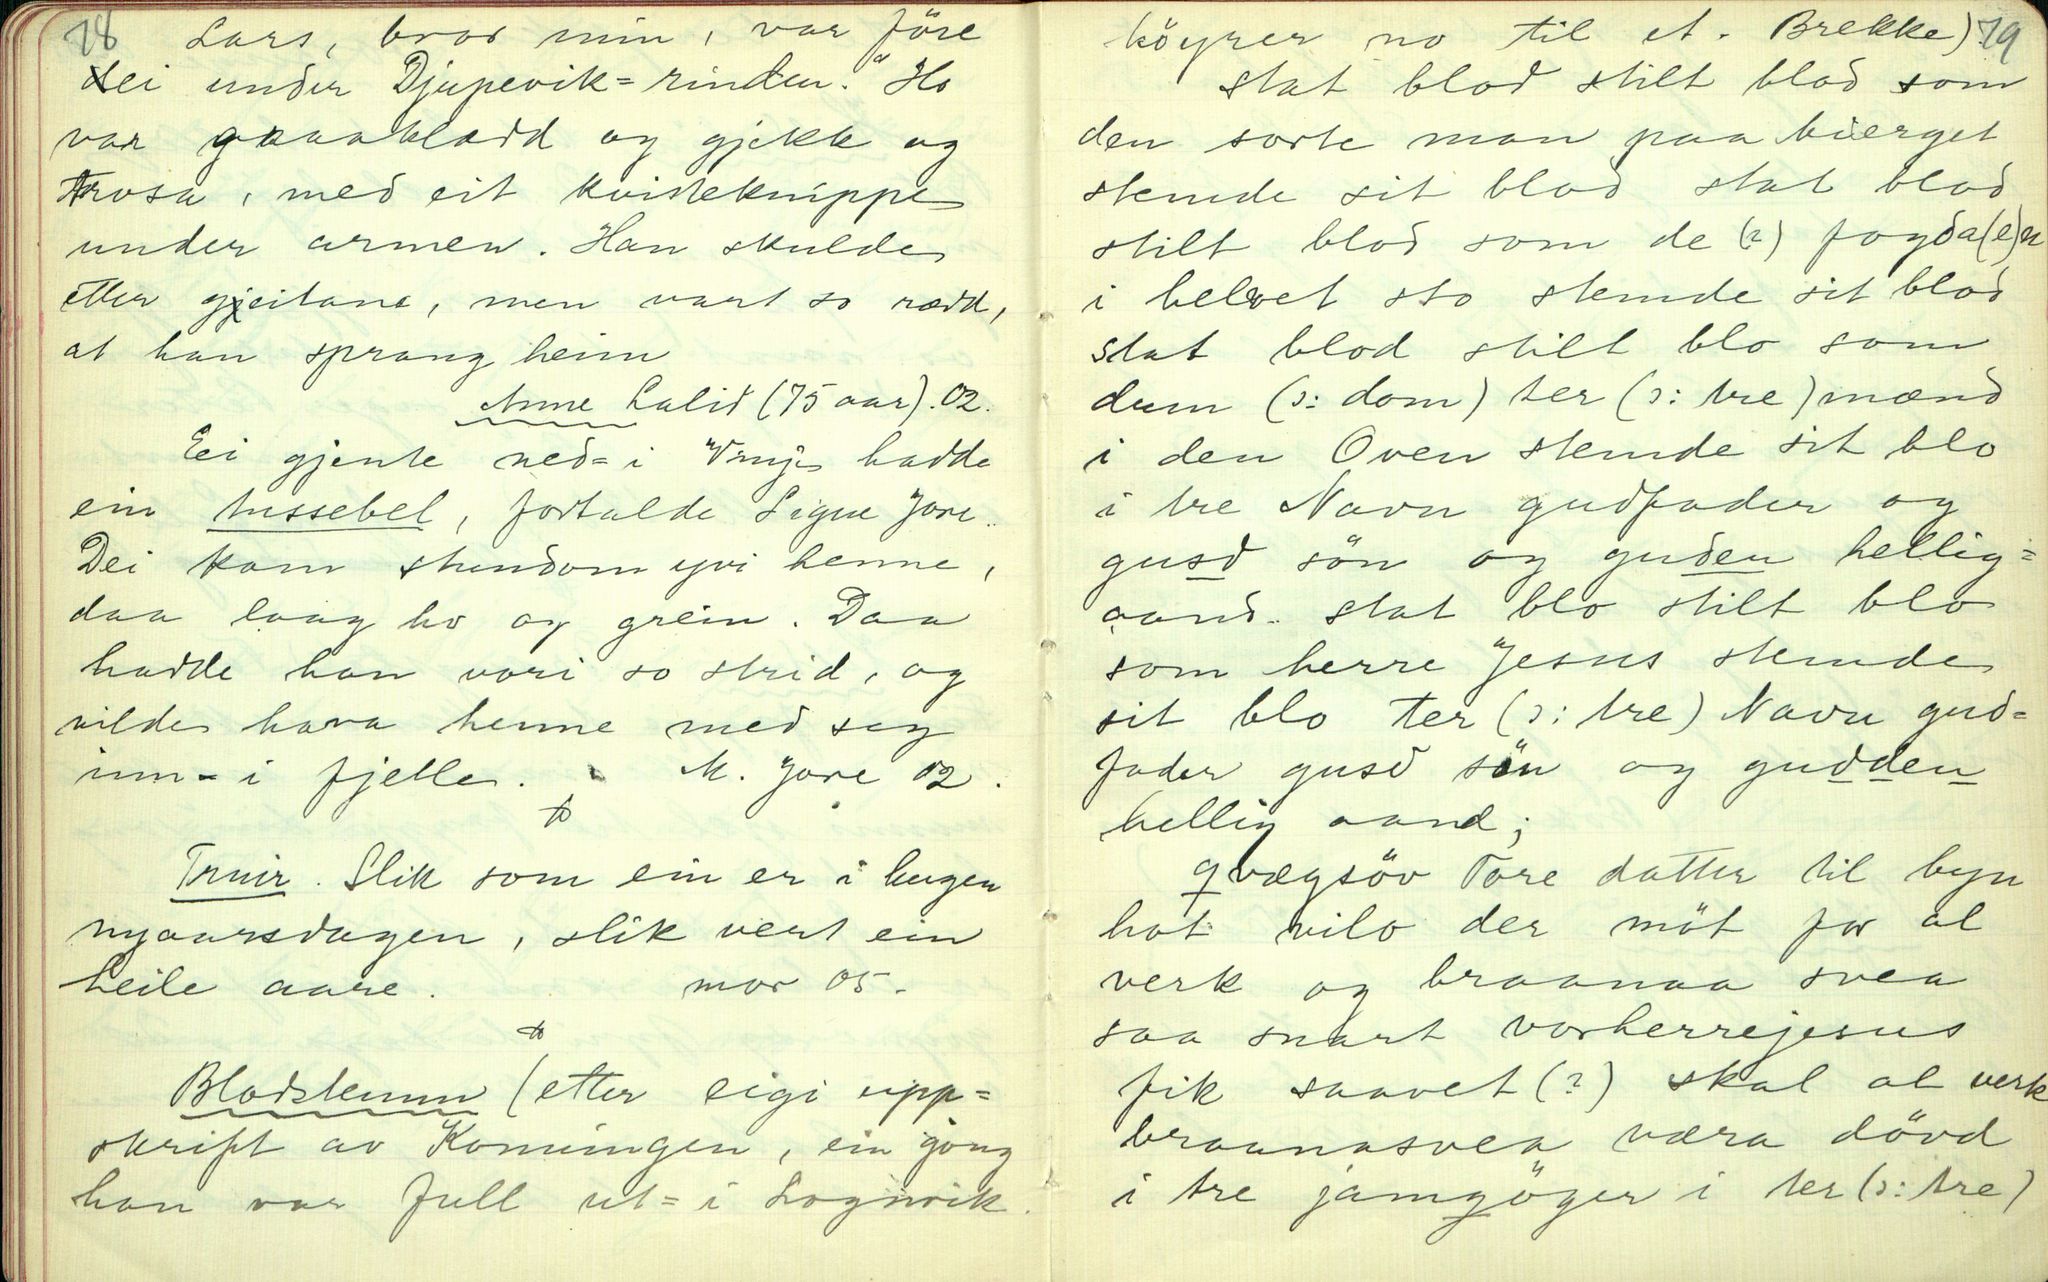 78
Lars, bror min, var före
dei under Djupevik-rinden." Ho
var graaklædd og gjekk og
trosa, med eit kvisteknippe
under armen. Han skulde
etter gjeitane, men vart so rædd,
at han sprang heim
Anne Lalid (75 aar). 02.
Ei gjente ned-i Vinje hadde
ein tussebel, fortalde Signe Jore.
Dei kom stundom yvi henne,
daa laag ho og grein. Daa
hadde han vori so strid, og
vilde hava henne med seg
inn-i fjelle. M. Jore 02.
Truir. Slik som ein er i hugen
nyaarsdagen, slik vert ein
heile aare. mor 05.
Blodstemm (etter eigi upp-
skrift av Konningen, ein gong
han var full ut-i Lognvik.
79
köyrer no til et. Brekke).
Stat blod stilt blod som
den sorte man paa bierget
stemde sit blod stat blod
stilt blod som de (?) fogda(e)n
i helvet sto stemde sit blod
stat blod stilt blo som
dum (ɔ: dom) ter (ɔ: tre) mænd
i den Oven stemde sit blo
i tre Navn gudfader og
gusd sön og guden hellig-
aand. stat blo stilt blo
som herre Jesus stemde
sit blo ter (ɔ: tre) Navn gud-
fader gusd sön og gudden
hellig aand;
qvægsöv Tore datter til byn
hot vilo der möt for al
verk og braanaa svea
saa snart vorherrejesus
fik saavet (?) skal al verk
braanasvea væra dövd
i tre jamgöger i ter (ɔ: tre)